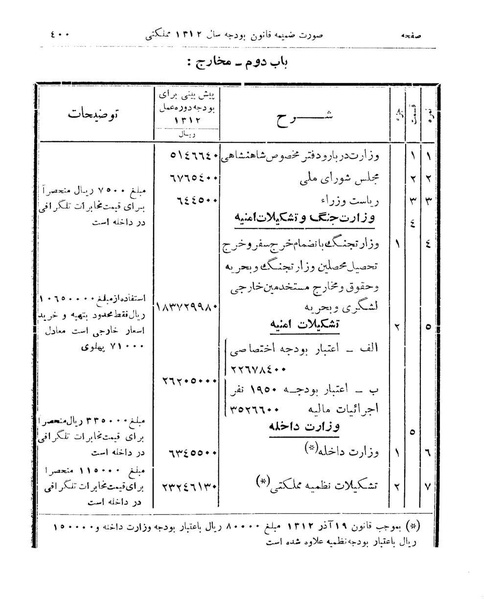 صفحه صورت ضمیمه قانون بودجه سال ۱۳۱۲ مملکتی ۴۰۰
باب دوم ـ مخارج :
نمره قسمت جزء شـــرح پیش بینی برای بودجه دوره عمل ۱۳۱۲ ریـال توضیحات
۱ ۱ وزارت دربار و دفتر مخصوص شاهنشاهی ۵۱۴۶۶۴۰
۲ ۲ مجلس شورای ملی ۶۷۶۵۴۰۰
۳ ۳ ریاست وزراء ۶۴۴۵۰۰ مبلغ ۷۵۰۰ ریـال منحصراً
برای قیمت مخابرات تلگرافی
در داخله است
۴ وزارت جنگ و تشکیلات امنیه
۴ ۱ وزارتجنگ بانضمام خرج سفر و خرج
تحصیل محصلین وزارتجنگ و بحریه
و حقوق و مخارج مستخدمین خارجی
لشگری و بحریه ۱۸۳۷۲۹۹۸۰
استفاده از مبلغ ۱۰۶۵۰۰۰۰
ریال فقط محدود بتهیه و خرید
اسعار خارجی است معادل
۷۱۰۰۰ پهلوی
۵ ۲ تشکیلات امنیه
الف ـ اعتبار بودجه اختصاصی
۲۲۶۷۸۴۰۰
ب ـ اعتبار بودجه ۱۹۵۰ نفر
اجرائیات مالیه ۳۵۲۶۶۰۰
۲۶۲۰۵۰۰۰
۵ وزارت داخله
۶ ۱ وزارت داخله (*) ۶۳۴۵۵۰۰
مبلغ ۳۳۵۰۰۰ ریال منحصراً
برای قیمت مخابرات تلگرافی
در داخله است
۷ ۲ تشکیلات نظمیه مملکتی (*) ۲۳۲۴۶۱۳۰
مبلغ ۱۱۵۰۰۰ منحصراً
برای قیمت مخابرات تلگرافی
در داخله است
(*) بموجب قانون ۱۹ آذر ۱۳۱۲ مبلغ ۸۰۰۰۰ ریال باعتبار بودجه وزارت داخله و ۱۵۰۰۰۰
ریال باعتبار بودجه نظمیه علاوه شده است